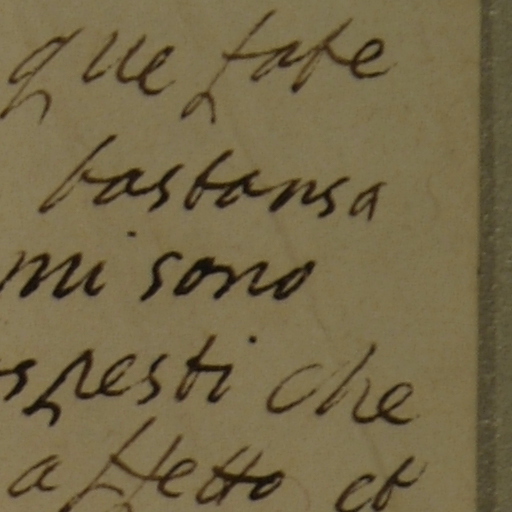 que fate
bastansa
mi sono
spesti che
affetto et